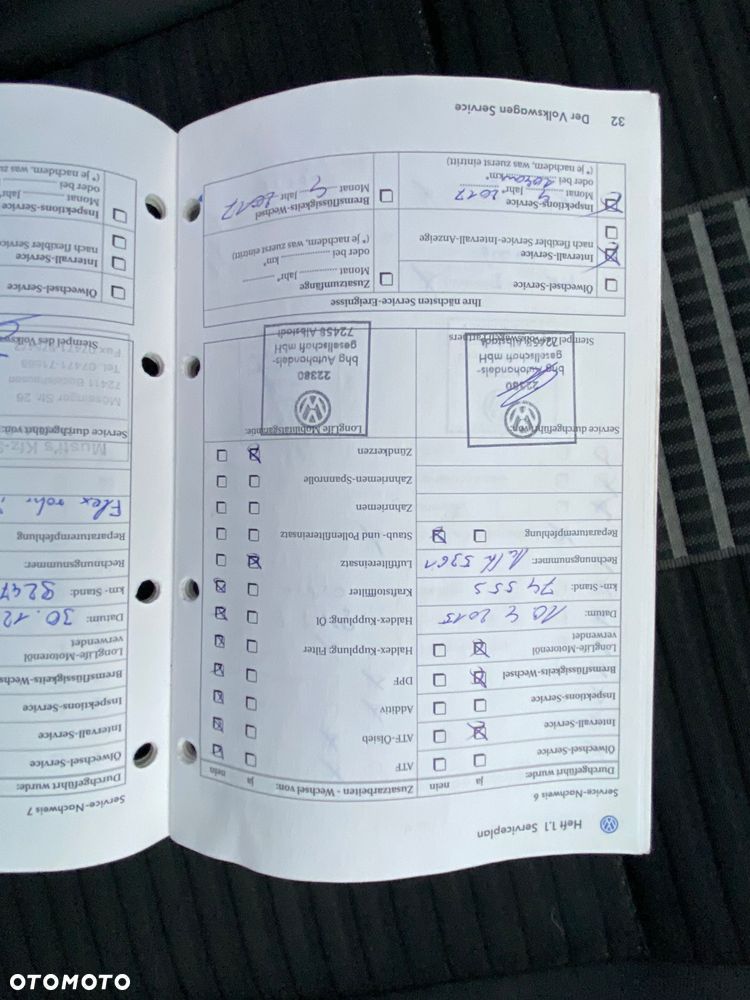 Heft 1.1 Serviceplan
Service-Nachweis 6
Durchgeführt wurde:
ja
nein
Ölwechsel-Service
Intervall-Service
Inspektions-Service
Bremsflüssigkeits-Wechsel
LongLife-Motorenöl
verwendet
Datum:
2015
km- Stand: 74 555
Rechnungsnummer:
Reparaturempfehlung
Service durchgeführt von:
22380
bhg Autohandels-
gesellschaft mbH
72458 Albstadt
Zusatzarbeiten - Wechsel von:
ja
nein
ATF
ATF-Ölsieb
Additiv
DPF
Haldex-Kupplung: Filter
Haldex-Kupplung: Öl
Kraftstofffilter
Luftfiltereinsatz
Staub- und Pollenfiltereinsatz
Zahnriemen
Zahnriemen-Spannrolle
Zündkerzen
LongLife Mobilitätsgarantie:
22380
bhg Autohandels-
gesellschaft mbH
72458 Albstadt
Ihre nächsten Service-Ereignisse
Ölwechsel-Service
Intervall-Service
nach flexibler Service-Intervall-Anzeige
Inspektions-Service
Monat 4 Jahr* 2017
oder bei km*
(* je nachdem, was zuerst eintritt)
Zusatzumfänge
Monat Jahr*
oder bei km*
(* je nachdem, was zuerst eintritt)
Bremsflüssigkeits-Wechsel
Monat 4 Jahr 2017
32 Der Volkswagen Service
Service-Nachweis 7
Durchgeführt wurde:
Ölwechsel-Service
Intervall-Service
Inspektions-Service
Bremsflüssigkeits-Wechs
LongLife-Motorenöl
verwendet
Datum: 30.12
km- Stand: 9247
Rechnungsnummer:
Reparaturempfehlung
Service durchgeführt von:
Musti's Kfz-S
Mössinger Str. 26
72411 Bodelshausen
Stempel des Volkswage
Ölwechsel-Service
Intervall-Service
nach flexibler Service
Inspektions-Service
Monat Jahr*
oder bei
(* je nachdem, was zu
OTOMOTO